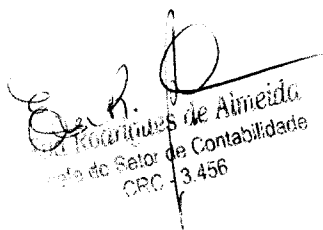 Rodrigues de Almeida
do Setor de Contabilidade
CRC - 3.456